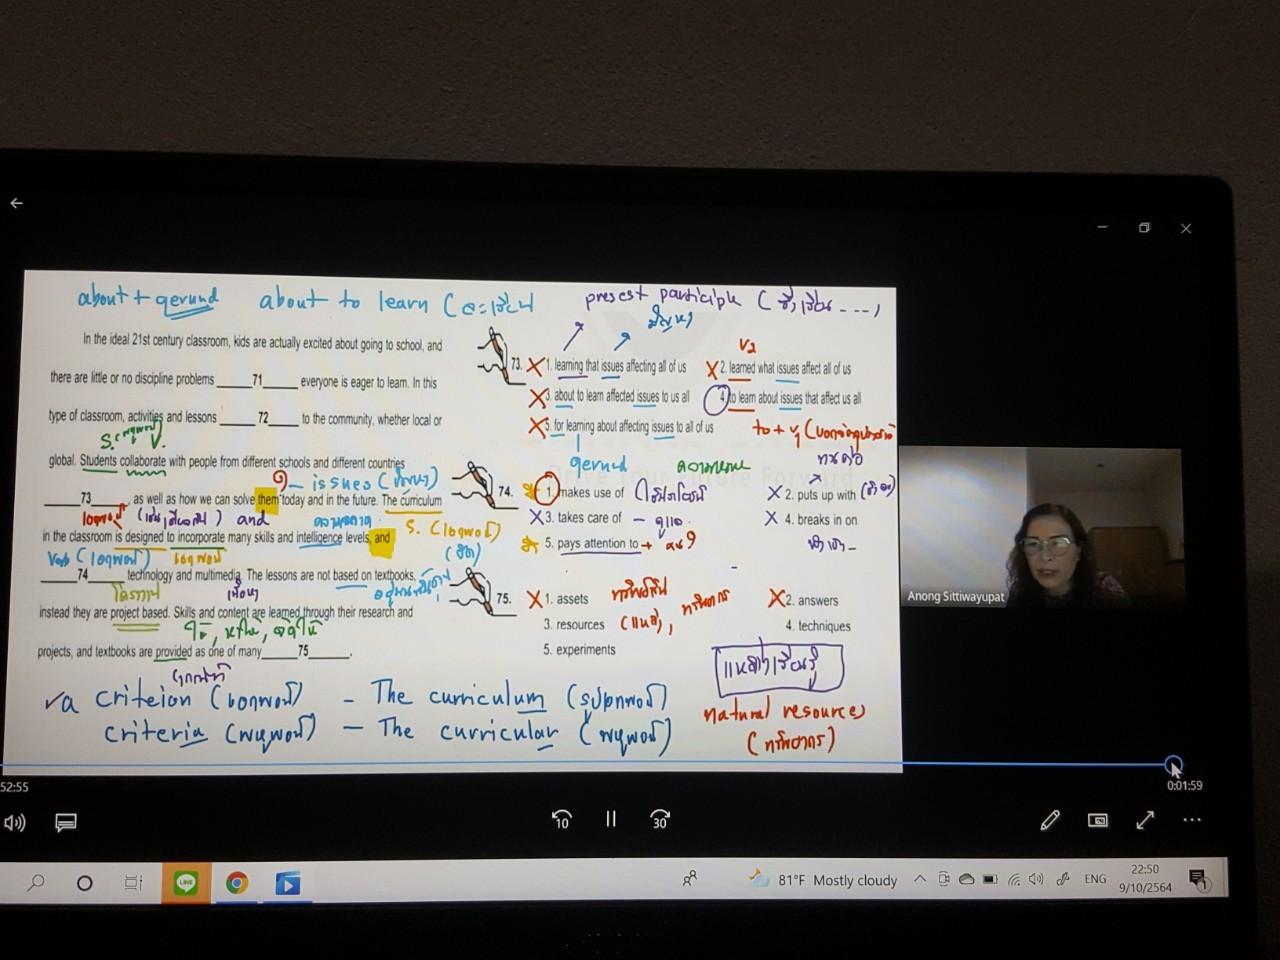 about + gerund about to learn (จะเรียน
present participle (ซึ่งเรียน ---)
In the ideal 21st century classroom, kids are actually excited about going to school, and
there are little or no discipline problems ____71____ everyone is eager to learn. In this
type of classroom, activities and lessons ____72____ to the community, whether local or
S. (พหูพจน์) V.
global. Students collaborate with people from different schools and different countries
issues (ปัญหา)
____73____, as well as how we can solve them today and in the future. The curriculum
เอกพจน์ and S. (เอกพจน์)
in the classroom is designed to incorporate many skills and intelligence levels, and
Verb (เอกพจน์)
____74____ technology and multimedia. The lessons are not based on textbooks,
โครงงาน เนื้อหา
instead they are project based. Skills and content are learned through their research and
projects, and textbooks are provided as one of many ____75____.
ปัญหา
V2
73. 1. learning that issues affecting all of us
2. learned what issues affect all of us
3. about to learn affected issues to us all
4. to learn about issues that affect us all
5. for learning about affecting issues to all of us
gerund
74. 1. makes use of (ใช้ประโยชน์
2. puts up with
3. takes care of – ดูแล
4. breaks in on
5. pays attention to → สนใจ
75. 1. assets ทรัพย์สิน
2. answers
3. resources (แหล่ง), ทรัพยากร
4. techniques
5. experiments
แหล่งเรียนรู้
natural resources
(ทรัพยากร)
✓a criteion (เอกพจน์) – The curriculum (รูปเอกพจน์)
criteria (พหูพจน์) – The curricular (พหูพจน์)
Anong Sittiwayupat
52:55
0:01:59
10
30
LINE
81°F Mostly cloudy
ENG
22:50
9/10/2564
1